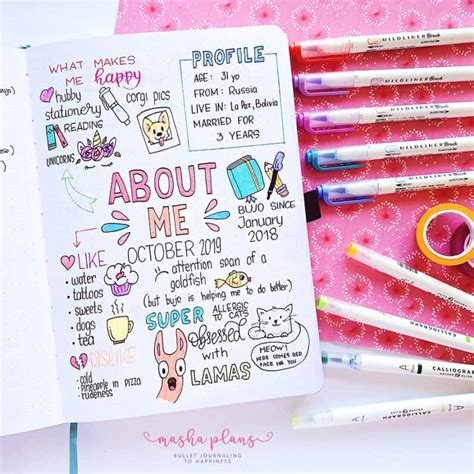 WHAT MAKES
ME happy
hubby
corgi pics
stationery
READING
UNICORNS
PROFILE
AGE: 31 yo
FROM: Russia
LIVE IN: La Paz, Bolivia
MARRIED FOR
3 YEARS
ABOUT
ME
OCTOBER 2019
BUJO SINCE
January
2018
attention span of a
goldfish
(but bujo is helping me to do better)
LIKE
• water
• tattoos
• sweets
• dogs
• tea
DISLIKE
• cold
• Pineapple in pizza
• rudeness
SUPER ALLERGIC
TO CATS
obsessed
with
LAMAS
MEOW!
HERE COMES RED
FACE FOR YOU
WILDLINER Brush
WILDLINER Brush
WILDLINER Brush
WILDLINER Brush
WILDLINER Brush
CALLIGRAPH
CALLIGRAPH
masha plans
BULLET JOURNALING
TO HAPPINESS